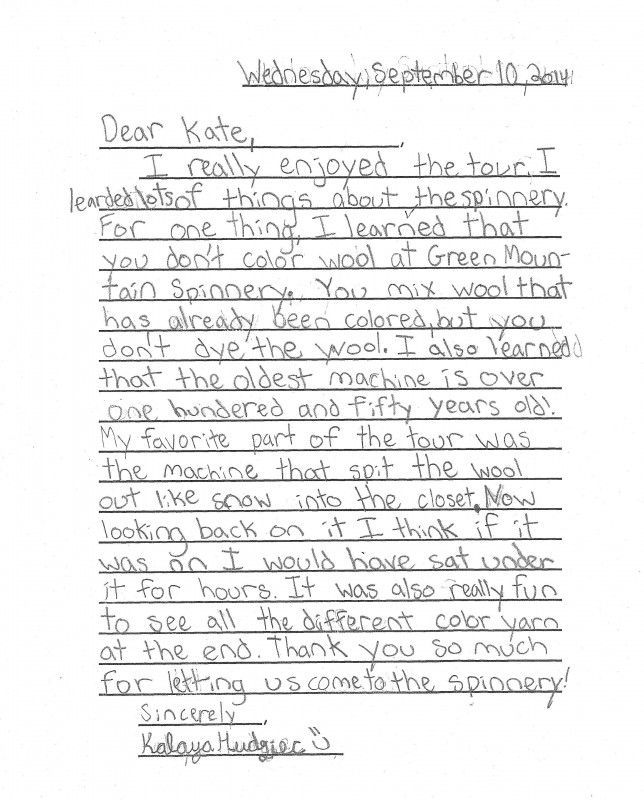 Wednesday, September 10, 2014
Dear Kate,
I really enjoyed the tour. I
learded lots of things about the spinnery.
For one thing, I learned that
you don't color wool at Green Moun-
tain Spinnery. You mix wool that
has already been colored, but you
don't dye the wool. I also learned
that the oldest machine is over
one hundred and fifty years old!
My favorite part of the tour was
the machine that spit the wool
out like snow into the closet. Now
looking back on it I think if it
was on I would have sat under
it for hours. It was also really fun
to see all the different color yarn
at the end. Thank you so much
for letting us come to the spinnery!
Sincerely,
Kalaya